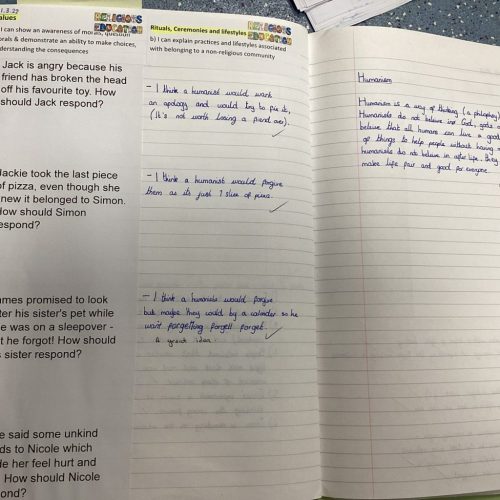 1.3.22
Values
RELIGIOUS
EDUCATION
I can show an awareness of morals, question
morals & demonstrate an ability to make choices,
understanding the consequences
Jack is angry because his
friend has broken the head
off his favourite toy. How
should Jack respond?
Jackie took the last piece
of pizza, even though she
knew it belonged to Simon.
How should Simon
respond?
James promised to look
after his sister's pet while
she was on a sleepover -
but he forgot! How should
his sister respond?
said some unkind
words to Nicole which
made her feel hurt and
How should Nicole
respond?
Rituals, Ceremonies and lifestyles
RELIGIOUS
EDUCATION
b) I can explain practices and lifestyles associated
with belonging to a non-religious community
- I think a humanist would want
an apology and would try to fix it,
(It's not worth losing a friend over).
- I think a humanist would forgive
them as its just 1 slice of pizza.
- I think a humanist would forgive
but maybe they could by a calender so he
wont forgetting forgett forget.
A great idea.
Humanism
Humanism is a way of thinking (a philosophy)
Humanists do not believe in God, gods o
believe that all humans can live a good
go things to help people without having
humanists do not believe in after life. they
make life fair and good for everyone.